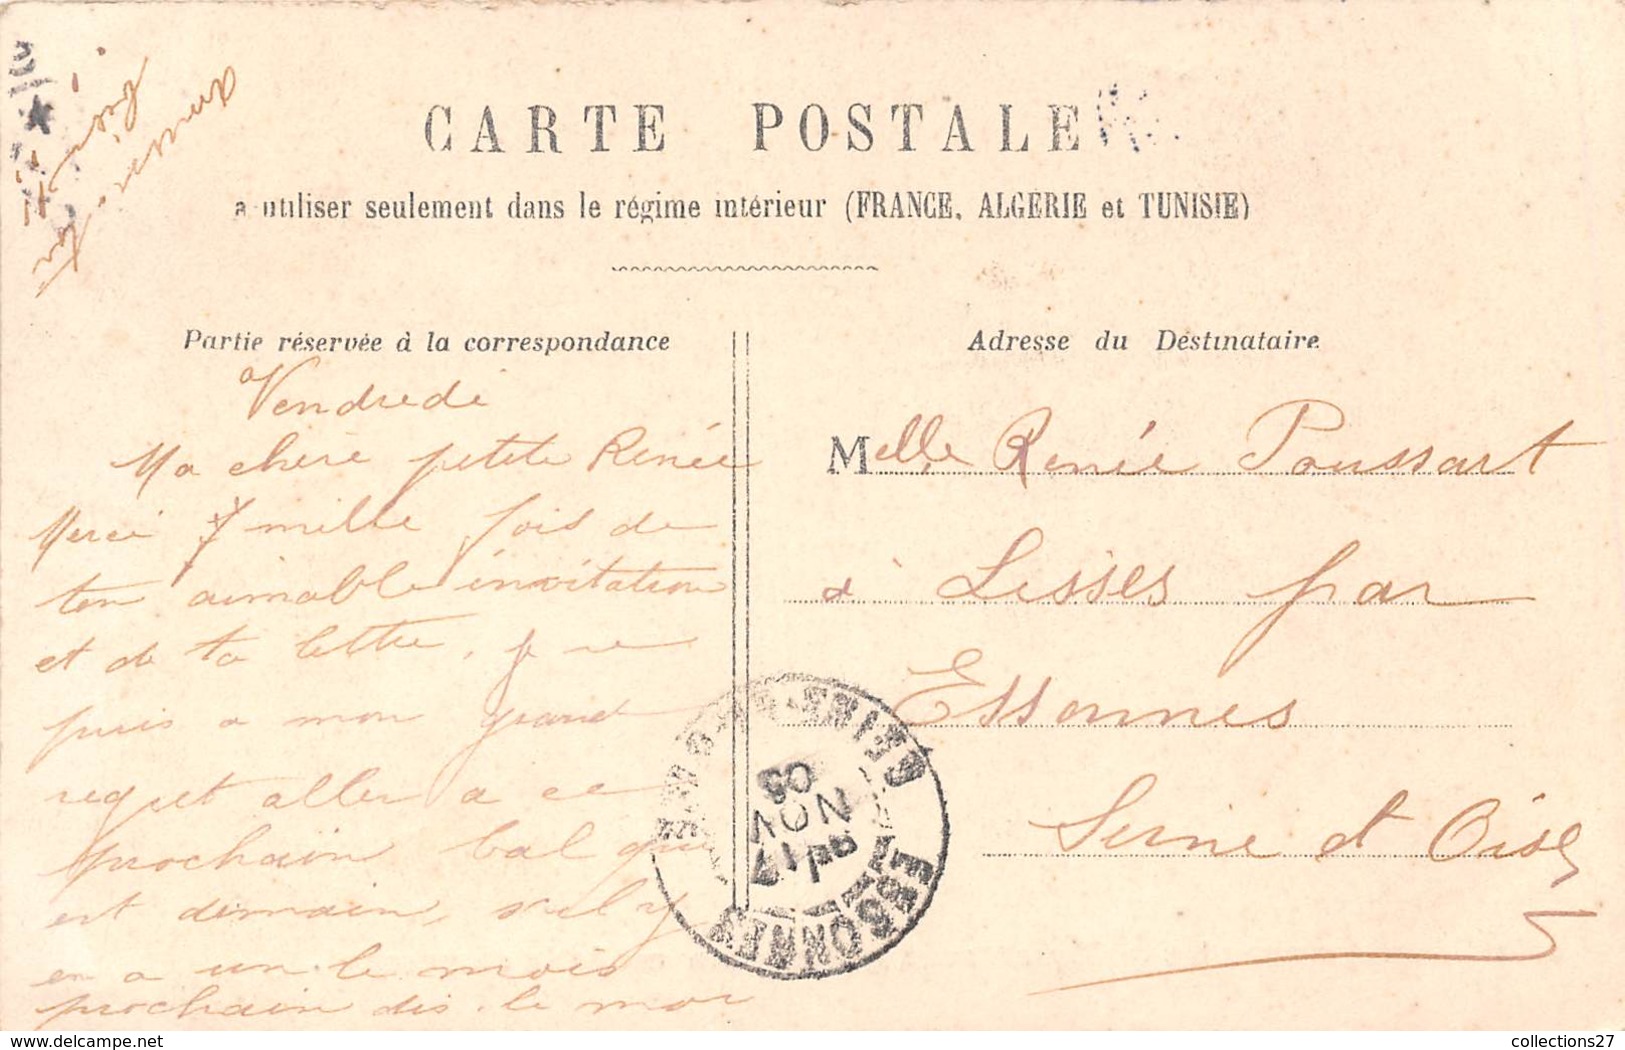 CARTE POSTALE
a utiliser seulement dans le régime intérieur (FRANCE, ALGÉRIE et TUNISIE)
Partie réservée à la correspondance
Adresse du Destinataire
Vendredi
Ma chère petite Renée
Merci mille fois de
ton aimable invitation
et de ta lettre, je ne
puis a mon grand
regret aller a ce
prochain bal qui
est demain, s'il y
en a un le mois
prochain dis-le moi
Melle Renée Poussart
à Lisses par
Essonnes
Seine et Oise
ESSONNES SEINE-ET-OISE
17
NOV
05
delcampe.net
collections27